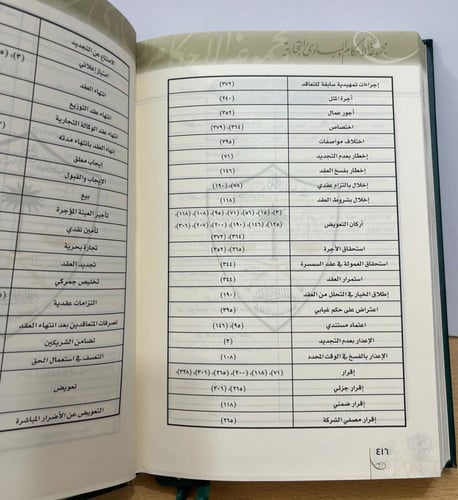 مجموعة الأحكام والمبادئ التجارية
إجراءات تمهيدية سابقة للتعاقد (٣٧٢)
أجرة المثل (٢٤٠)
أجور عمال (٣٥٢)
اختصاص (٣٦٤)، (٣٧٩)
اختلاف مواصفات (٣٩٥)
إخطار بعدم التجديد (٧١)
إخطار بفسخ العقد (١٤٦)
إخلال بالتزام عقدي (٧٨)، (١٩٠)
إخلال بشروط العقد (١١٨)
أركان التعويض (٣)، (١٥)، (٥٦)، (٧١)، (٩٥)، (١٠٨)، (١١٨)،
(١٢٥)، (١٤٦)، (١٩٠)، (٢٠٠)، (٢٠٧)، (٣٠٦)،
(٣٦٤)، (٣٧٢)
استحقاق الأجرة (٢٦٥)، (٣٥٢)
استحقاق العمولة في عقد السمسرة (٣٤٤)
استمرار العقد (٣٤٤)
إطلاق الخيار في التحلل من العقد (١٩٠)
اعتراض على حكم غيابي (٣٩٥)
اعتماد مستندي (٩٥)، (١٤٦)
الإعذار بعدم التجديد (٣)
الإعذار بالفسخ في الوقت المحدد (١٠٨)
إقرار (٧١)، (١١٨)، (٢٠٠)، (٢٦٥)، (٣٠٦)، (٣٢٨)
إقرار جزئي (٢٦٥)، (٣٠٦)
إقرار ضمني (١١٨)
إقرار مصفي الشركة (٢٦٥)
٤١٦
الامتناع عن التجديد
امتياز إعلاني
انتهاء العقد
انتهاء عقد التوزيع
انتهاء عقد الوكالة التجارية
إنهاء العقد بانتهاء مدته
إيجاب معلق
الإيجاب والقبول
بيع
تأجير العينة المؤجرة
تأمين نقدي
تجارة بحرية
تجديد العقد
تخليص جمركي
التزامات عقدية
تصرفات المتعاقدين بعد انتهاء العقد
تضامن الشريكين
التعسف في استعمال الحق
تعويض
التعويض عن الأضرار المباشرة